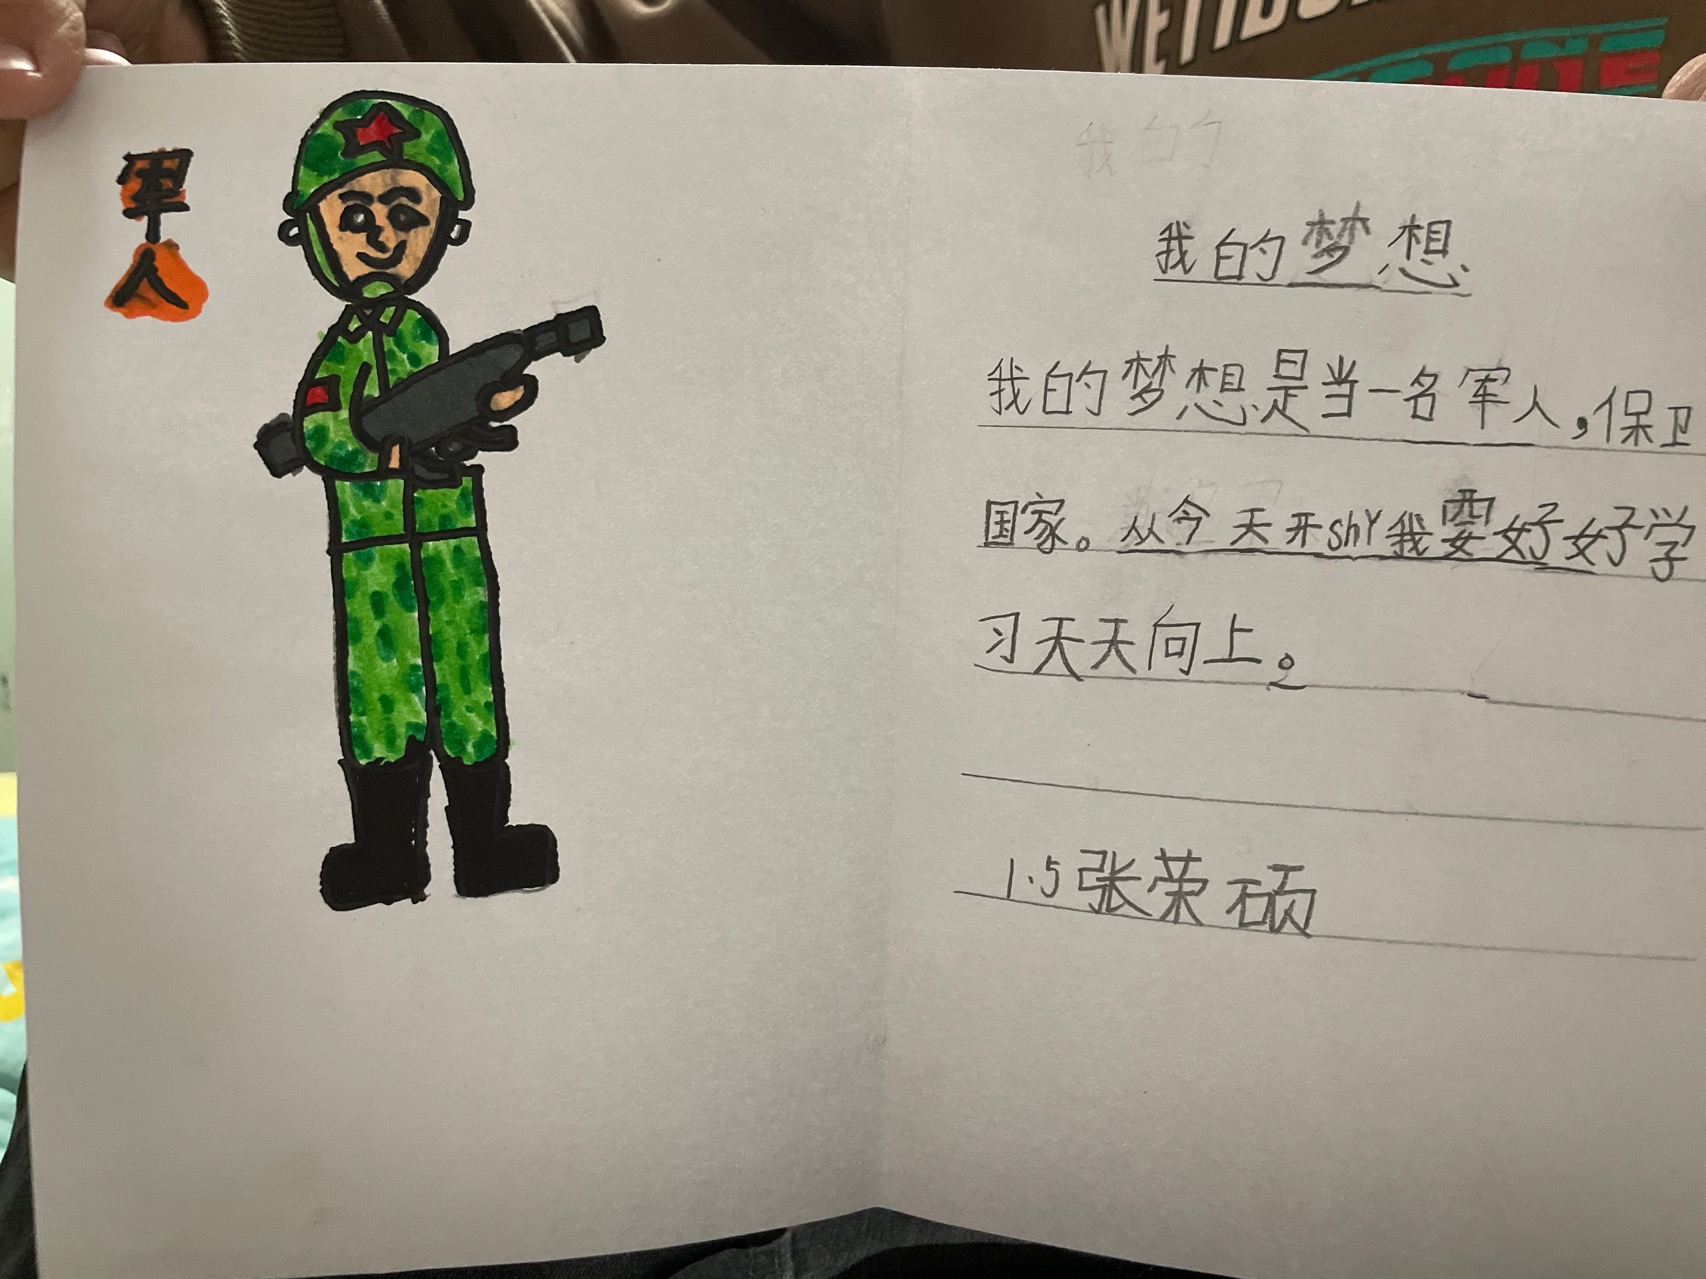 军人
我的
我的梦想
我的梦想是当一名军人，保卫
国家。从今天开shY我要好好学
习天天向上。
1.5张荣硕